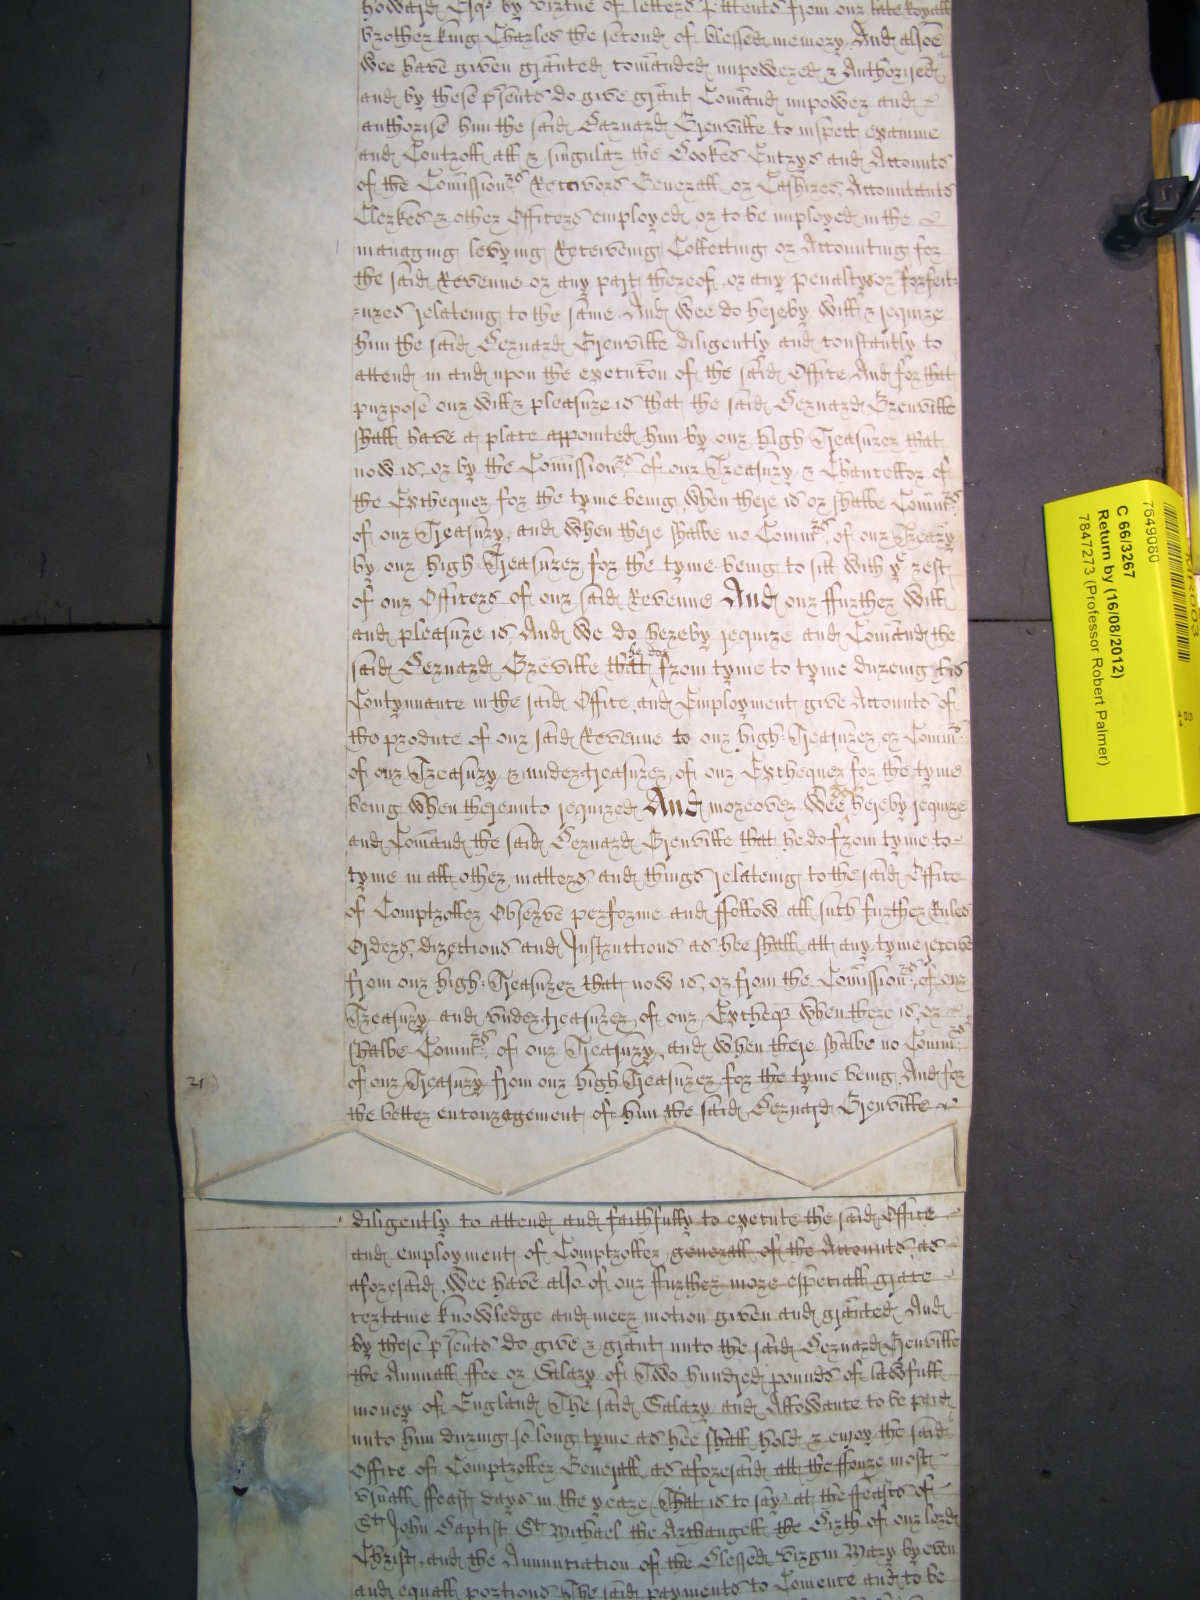 Howard Esqr by virtue of letters Pattents from our late Royall
Brother King Charles the second of blessed memory And alsoe
Wee have given granted com̄anded impowered & Authorised
and by these p̃sents do give grant Com̄and impower and
authorise him the said Bernard Grenville to inspect examine
and Controll all & singular the Bookes Entrys and Accounts
of the Com̄issionrs Receivors Generall or Cashires, Accountants
Clerkes & other Officers employed or to be imployed in the
managing levying Receiveing Collecting or Accounting for
the said Revenue or any part thereof or any penaltys or forfeit-
=ures relateing to the same And wee do hereby will & require
him the said Bernard Grenville diligently and constantly to
attend in and upon the execuc̄on of the said Office And for that
purpose our will & pleasure is that the said Bernard Grenville
shall have a place appointed him by our high Treasurer that
now is or by the Com̄issionrs of our Treasury & Chancellor of
the Exchequer for the tyme being when there is or shalbe Com̄rs
of our Treasury, and when there shalbe no Com̄rs of our Treāry
by our high Treasurer for the tyme being to sitt with ye rest
of our Officers of our said Revenue And our ffurther will
and pleasure is And we do hereby require and Com̄and the
said Bernard Grēville that he doe from tyme to tyme dureing his
Contynnance in the said Office and Employment give Accounts of
the produce of our said Revenue to our high Treasurer or Com̄rs
of our Treasury & undertreasurer of our Exchequer for the tyme
being when thereunto required And moreover wee doe hereby require
and Com̄and the said Bernard Grenville that he do from tyme to
tyme in all other matters and things relateing to the said Office
of Comptroller Observe performe and ffollow all such further Rules
Orders, directions and Instructions as hee shall att any tyme receive
from our high Treasurer that now is, or from the Com̄issionrs of our
Treasury and undertreasurer of our Excheq̃ when there is, or
shalbe Com̄rs of our Treasury and when there shalbe no Com̄rs
21
of our Treasury from our high Treasurer for the tyme being And for
the better encouragement of him the said Bernard Grenville
diligently to attend and faithfully to execute the said Office
and employment of Comptroller generall of the Accounts as
aforesaid, Wee have also of our ffurther more especiall grace
certaine knowledge and meer motion given and granted And
by these p̃sents do give & grant unto the said Bernard Grenville
the Annuall ffee or Salary of Two hundred pounds of lawfull
money of England The said Salary and Allowance to be paid
unto him during so long tyme as hee shall hold & enjoy the said
Office of Comptroller Generall as aforesaid att the ffoure most
usuall ffeast days in the yeare (That is to say) at the ffeasts of
St John Baptist St Michael the Archangell the Birth of our lord
Christ, and the Annunciation of the Blessed Virgin Mary by even
and equall portions The said payments to Comence and to be
7649080
C 66/3267
Return by (16/08/2012)
7847273 (Professor Robert Palmer)